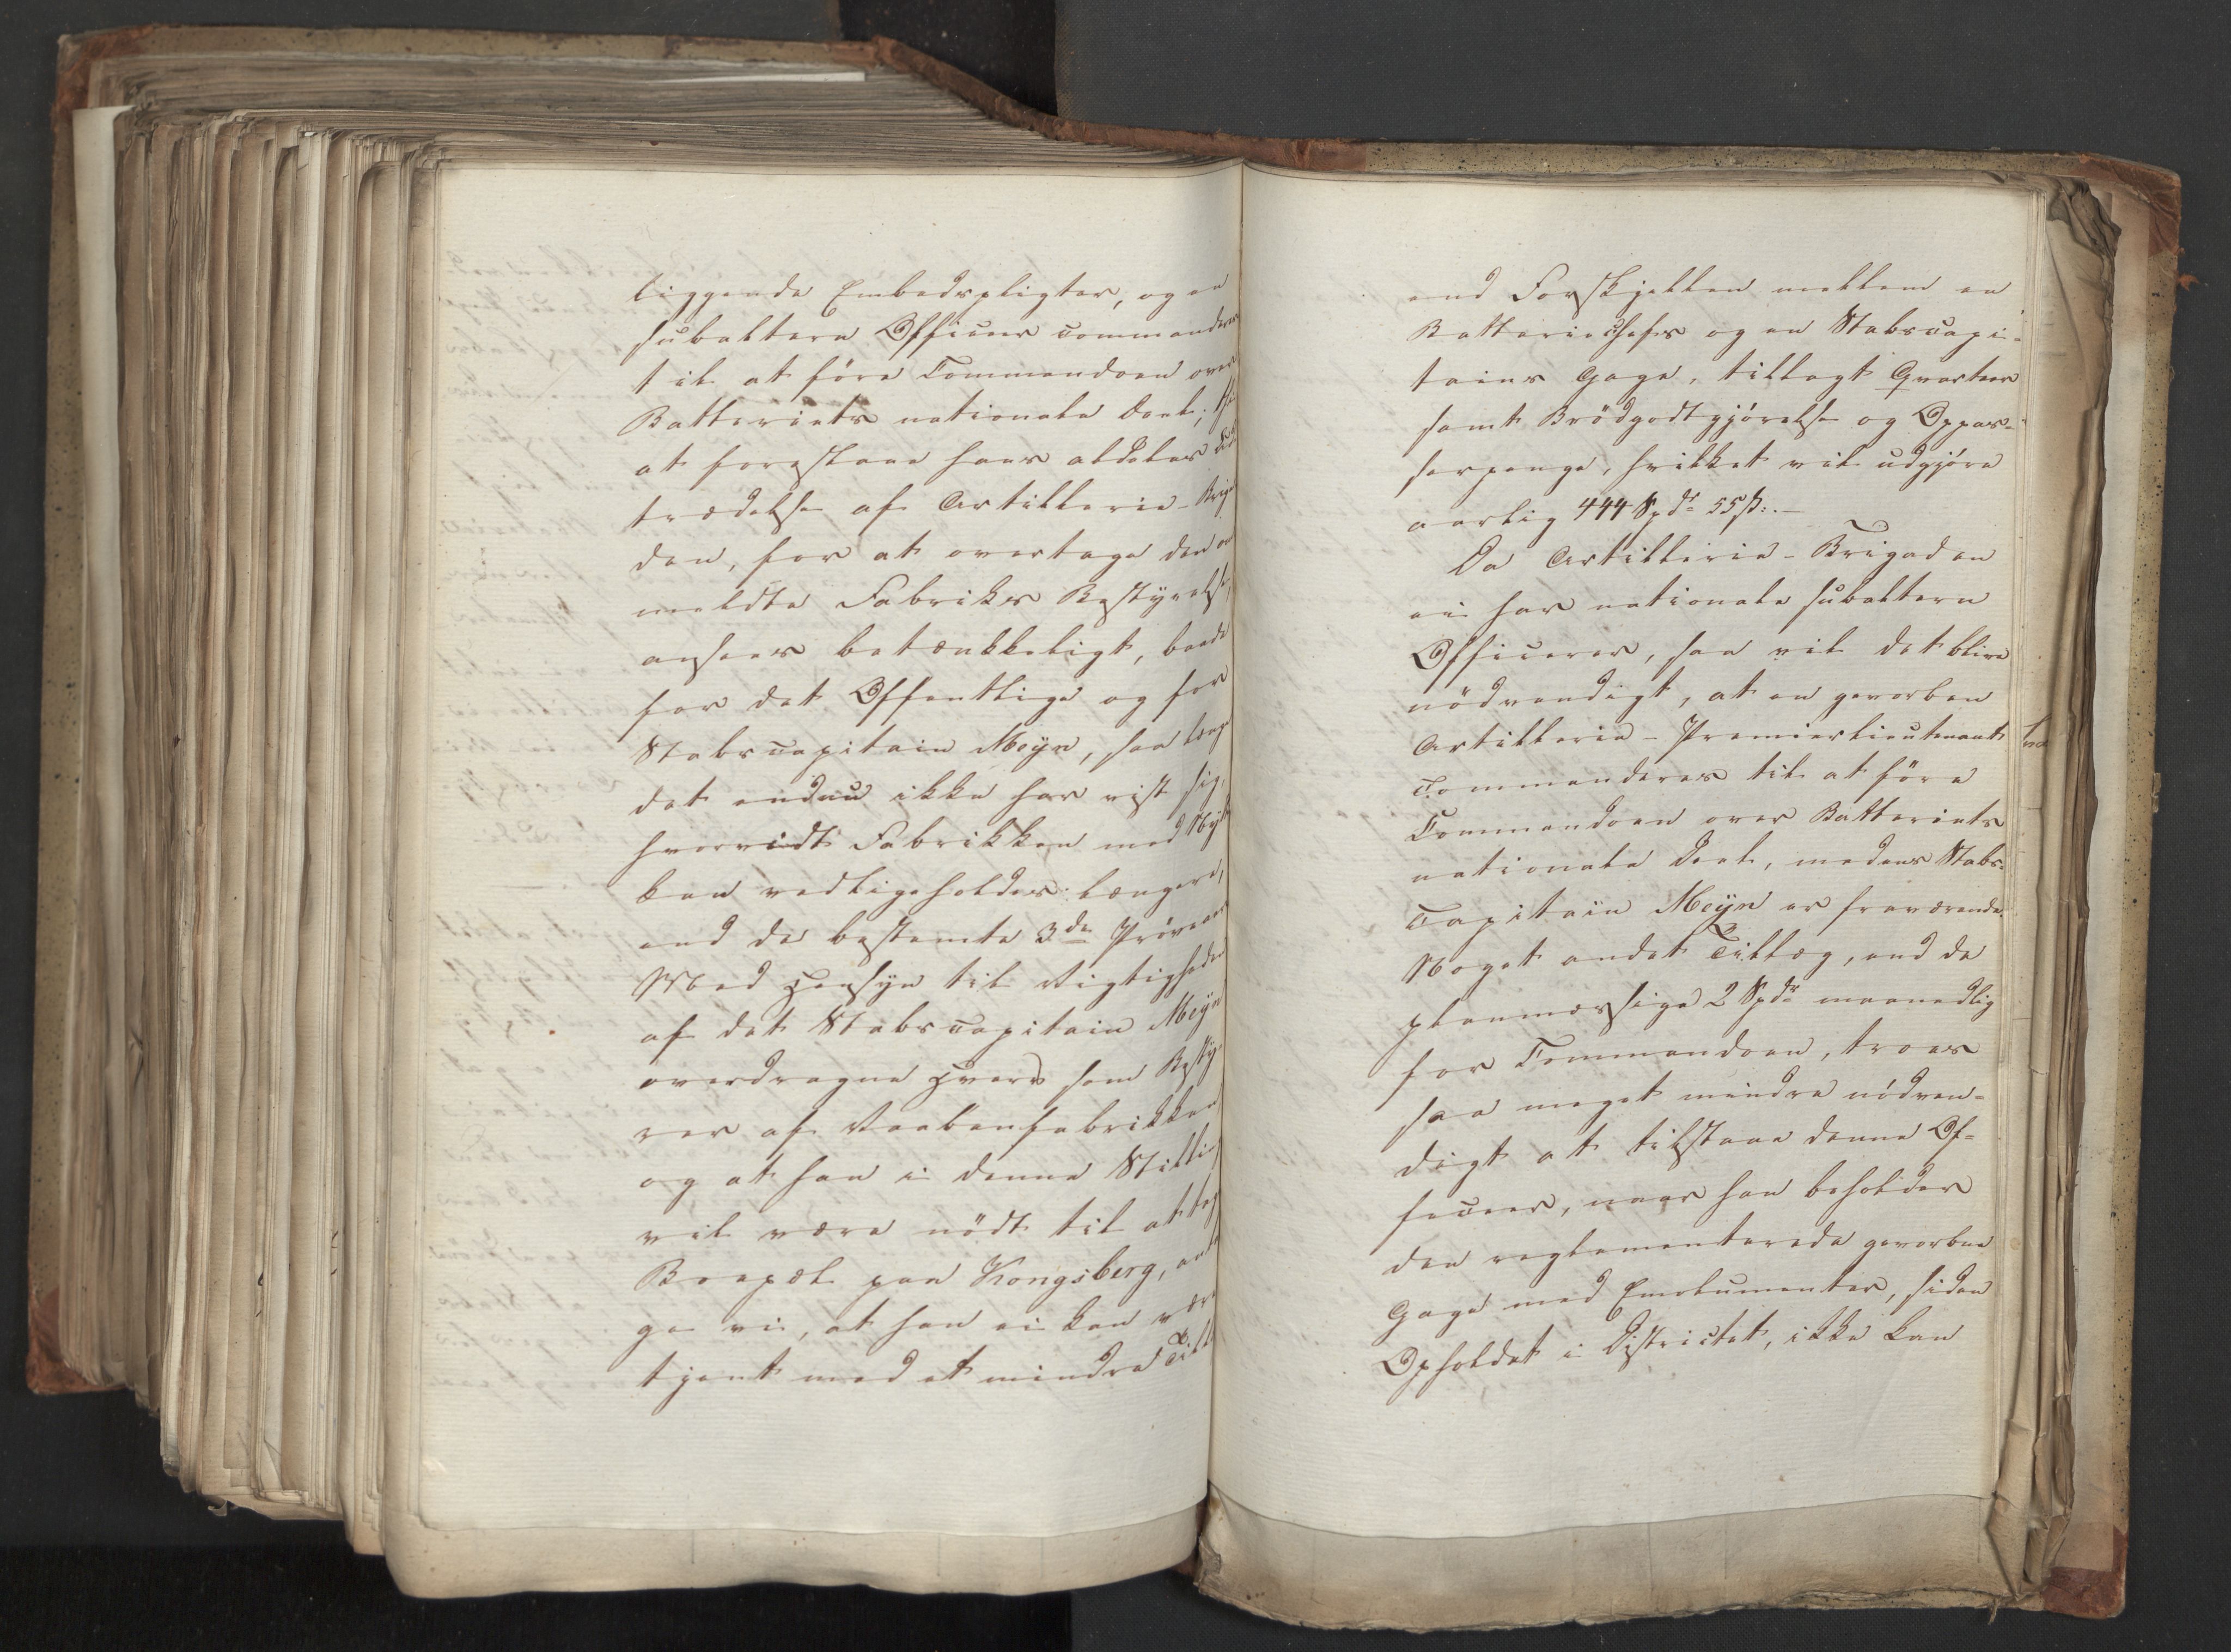 liggende Embedspligter, og en
subaltern Officeer commanderes
til at före Commandoen over
Batteriets nationale Deel; thi
at foreslaae hans aldeles Ud
trædelse af Artillerie-Briga
den, for at overtage den om
meldte Fabriks Bestyrelse,
ansees betænkeligt, baade
for det Offentlige og for
Stabscapitain Meyn, saa længe
det endnu ikke har vist sig,
hvorvidt Fabrikken med Nytte
kan vedligeholdes længere,
end de bestemte 3de Pröveaar
Med Hensyn til Vigtigheden
af det Stabscapitain Meyn
overdragne Hverv som Besty-
rer af Vaabenfabrikken
og at han i denne Stilling
vil være nödt til at tage
Boepæl paa Kongsberg, anta
ge vi, at han ei kan være
tjent med et mindre Till
end Forskjellen mellem en
Batteriechefs og en Stabscapi-
tains Gage, tillagt Qvarteer
samt Brödgodtgjörelse og Oppas-
serpenge, hvilket vil udgjöre
aarlig 444 Spdr 55 ß.-
Da Artillerie-Brigaden
ei har nationale subaltern
Officerer, saa vil det blive
nödvendigt, at en gevorben
Artillerie-Premierlieutenant
commanderes til at före
Commandoen over Batteriets
nationale Deel, medens Stabs-
capitain Meyn er fraværende.
Noget andet Tillæg, end de
planmæssige 2 Spdr maanedlig
for Commandoen, troes
saa meget mindre nödven-
digt at tilstaae denne Of-
ficeer, naar han beholder
den reglementerede gevorbne
Gage med Emolumenter, siden
Opholdet i Districtet, ikke kan